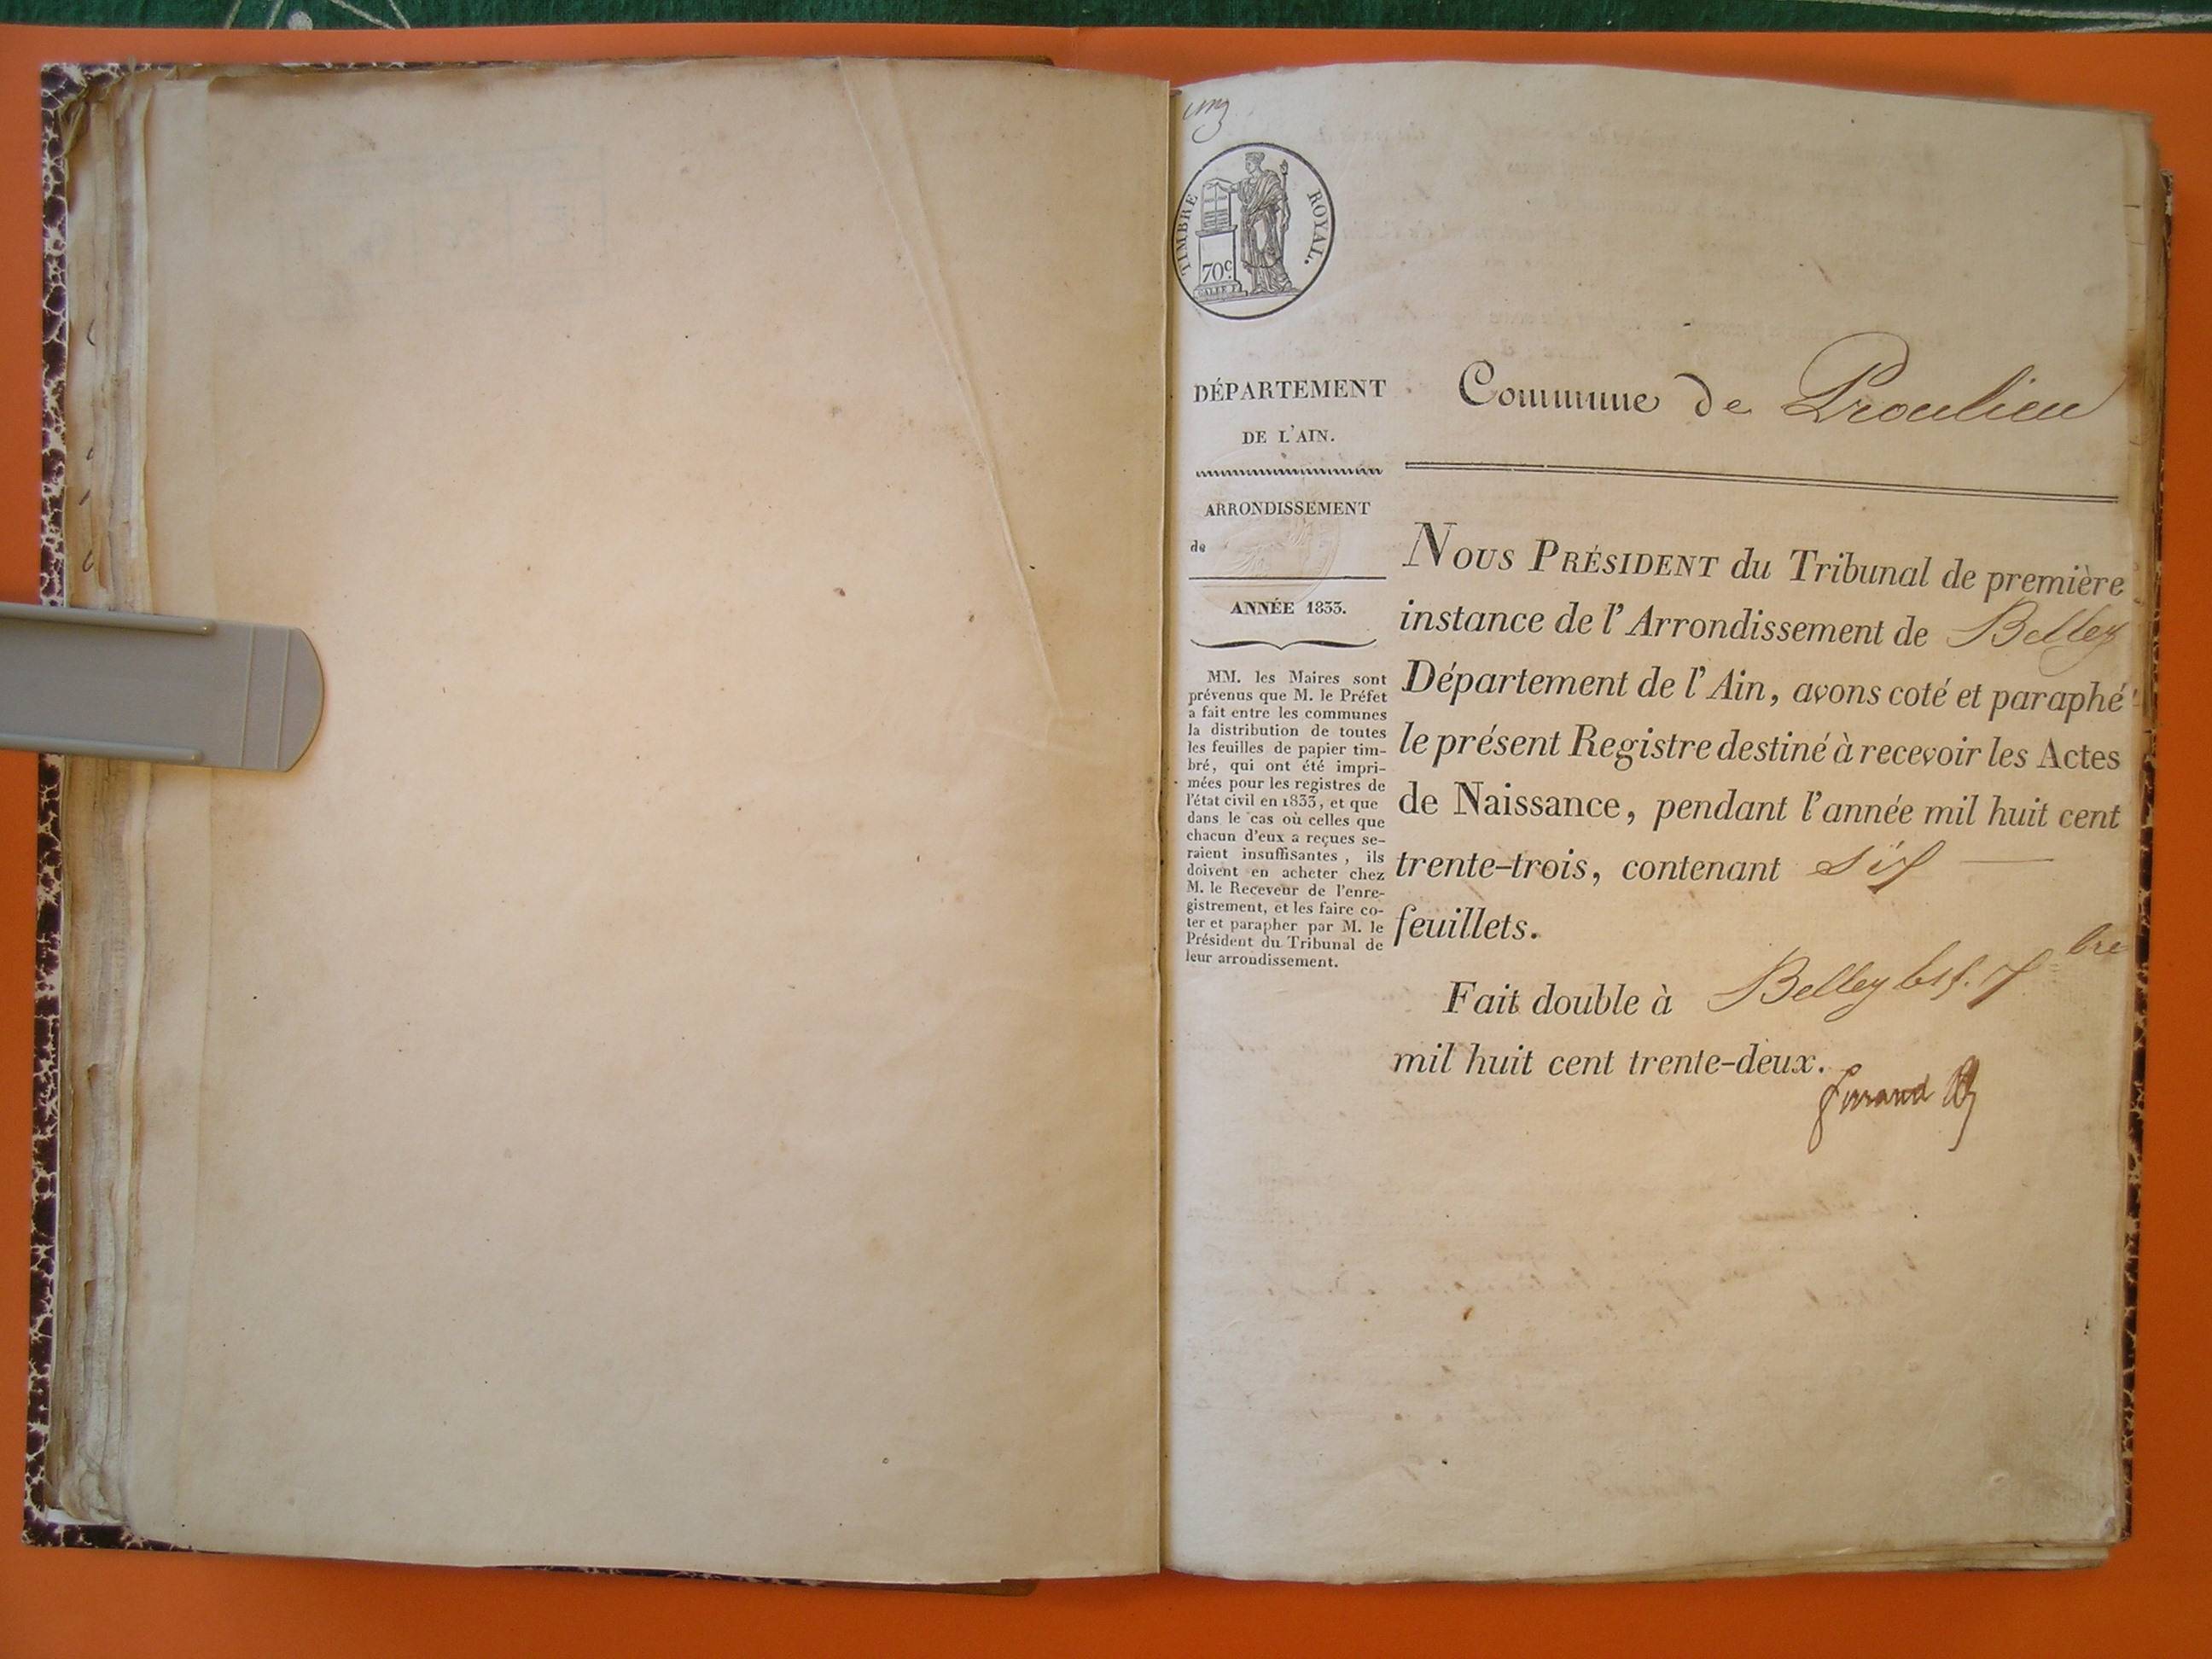 TIMBRE ROYAL.
70c.
DÉPARTEMENT
DE L'AIN.
ARRONDISSEMENT
de
ANNÉE 1833.
MM. les Maires sont
prévenus que M. le Préfet
a fait entre les communes
la distribution de toutes
les feuilles de papier tim-
bré, qui ont été impri-
mées pour les registres de
l'état civil en 1833, et que
dans le cas où celles que
chacun d'eux a reçues se-
raient insuffisantes, ils
doivent en acheter chez
M. le Receveur de l'enre-
gistrement, et les faire co-
ter et parapher par M. le
Président du Tribunal de
leur arrondissement.
Commune de Proulieu
NOUS PRÉSIDENT du Tribunal de première
instance de l'Arrondissement de Belley
Département de l'Ain, avons coté et paraphé
le présent Registre destiné à recevoir les Actes
de Naissance, pendant l'année mil huit cent
trente-trois, contenant six
feuillets.
Fait double à Belley 7bre
mil huit cent trente-deux.